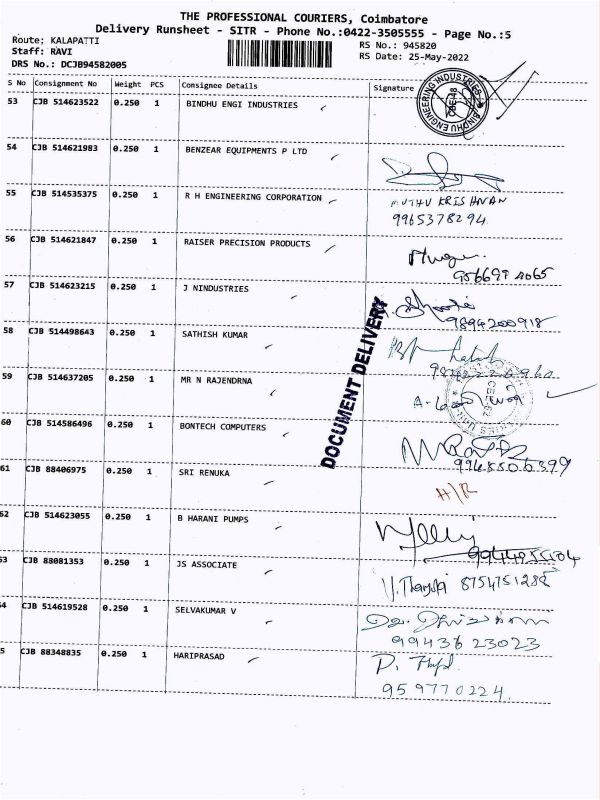 THE PROFESSIONAL COURIERS, Coimbatore
Delivery Runsheet - SITR - Phone No.:0422-3505555 - Page No.:5
Route; KALAPATTI
Staff: RAVI
DRS No.: DCJB94582005
RS No.: 945820
RS Date: 25-May-2022
S No Consignment No Weight PCS Consignee Details Signature
53 CJB 514623522 0.250 1 BINDHU ENGI INDUSTRIES
BINDHU ENGINEERING INDUSTRIES
54 CJB 514621983 0.250 1 BENZEAR EQUIPMENTS P LTD
55 CJB 514535375 0.250 1 R H ENGINEERING CORPORATION
MUTHU KRISHNAN
9965378294
56 CJB 514621847 0.250 1 RAISER PRECISION PRODUCTS
57 CJB 514623215 0.250 1 J NINDUSTRIES
9894200918
DOCUMENT DELIVERY
58 CJB 514498643 0.250 1 SATHISH KUMAR
59 CJB 514637205 0.250 1 MR N RAJENDRNA
60 CJB 514586496 0.250 1 BONTECH COMPUTERS
61 CJB 88406975 0.250 1 SRI RENUKA
H/R
62 CJB 514623055 0.250 1 B HARANI PUMPS
53 CJB 88081353 0.250 1 JS ASSOCIATE
4 CJB 514619528 0.250 1 SELVAKUMAR V
99436 23023
5 CJB 88348835 0.250 1 HARIPRASAD
959770224.